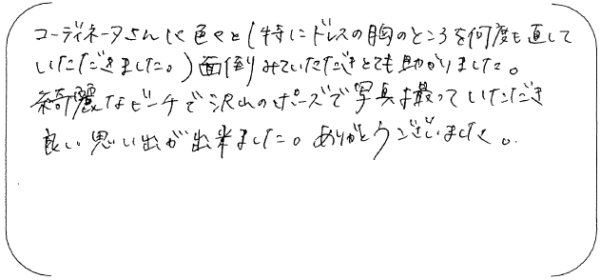 コーディネータさんに色々と(特にドレスの胸のところを何度も直して
いただきました。)面倒みていただきとても助かりました。
綺麗なビーチで沢山のポーズで写真を撮っていただき
良い思い出が出来ました。ありがとうございました。